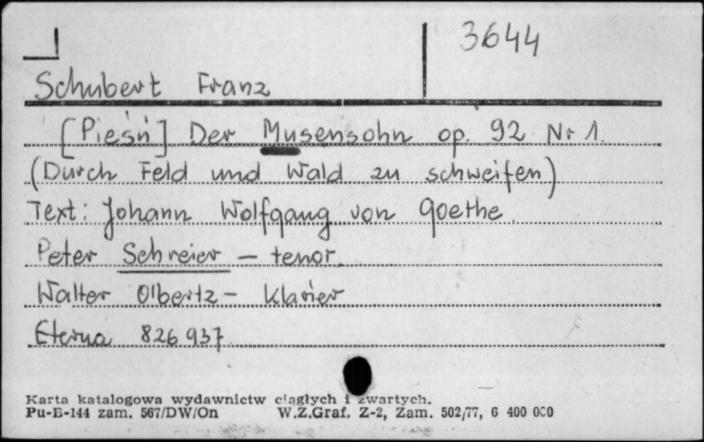 3644
Schubert Franz
[Pieśń] Der Musensohn op. 92 Nr 1.
(Durch Feld und Wald zu schweifen)
Text: Johann Wolfgang von Goethe
Peter Schreier – tenor
Walter Olbertz – Klavier
Eterna 826 937
Karta katalogowa wydawnictw ciągłych i zwartych.
Pu-B-144 zam. 567/DW/On W.Z.Graf. Z-2, Zam. 502/77, 6 400 000